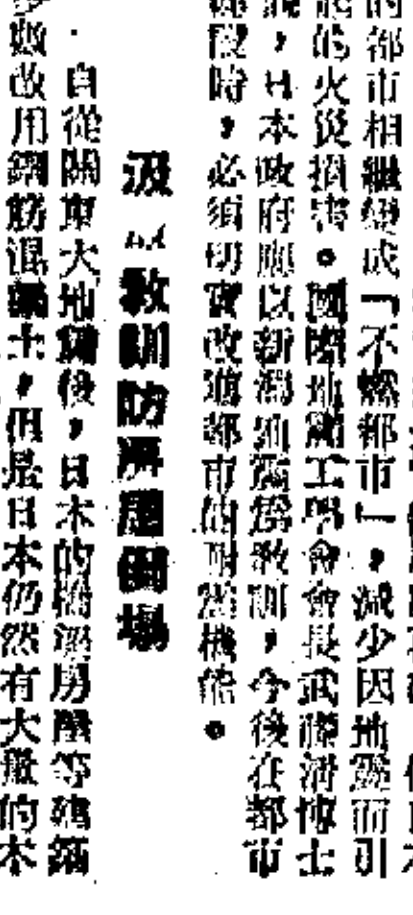 的都市相繼變成「不燃都市」，減少因地震而引
起的火災損害。國際地震工學會會長武藤清博士
說，日本政府應以新潟地震為教訓，今後在都市
時，必須切實改進都市的耐震機能。
汲取教訓防房屋倒塌
自從關東大地震後，日本的橋梁房屋等建築
多數改用鋼筋混凝土，但是日本仍然有大量的木